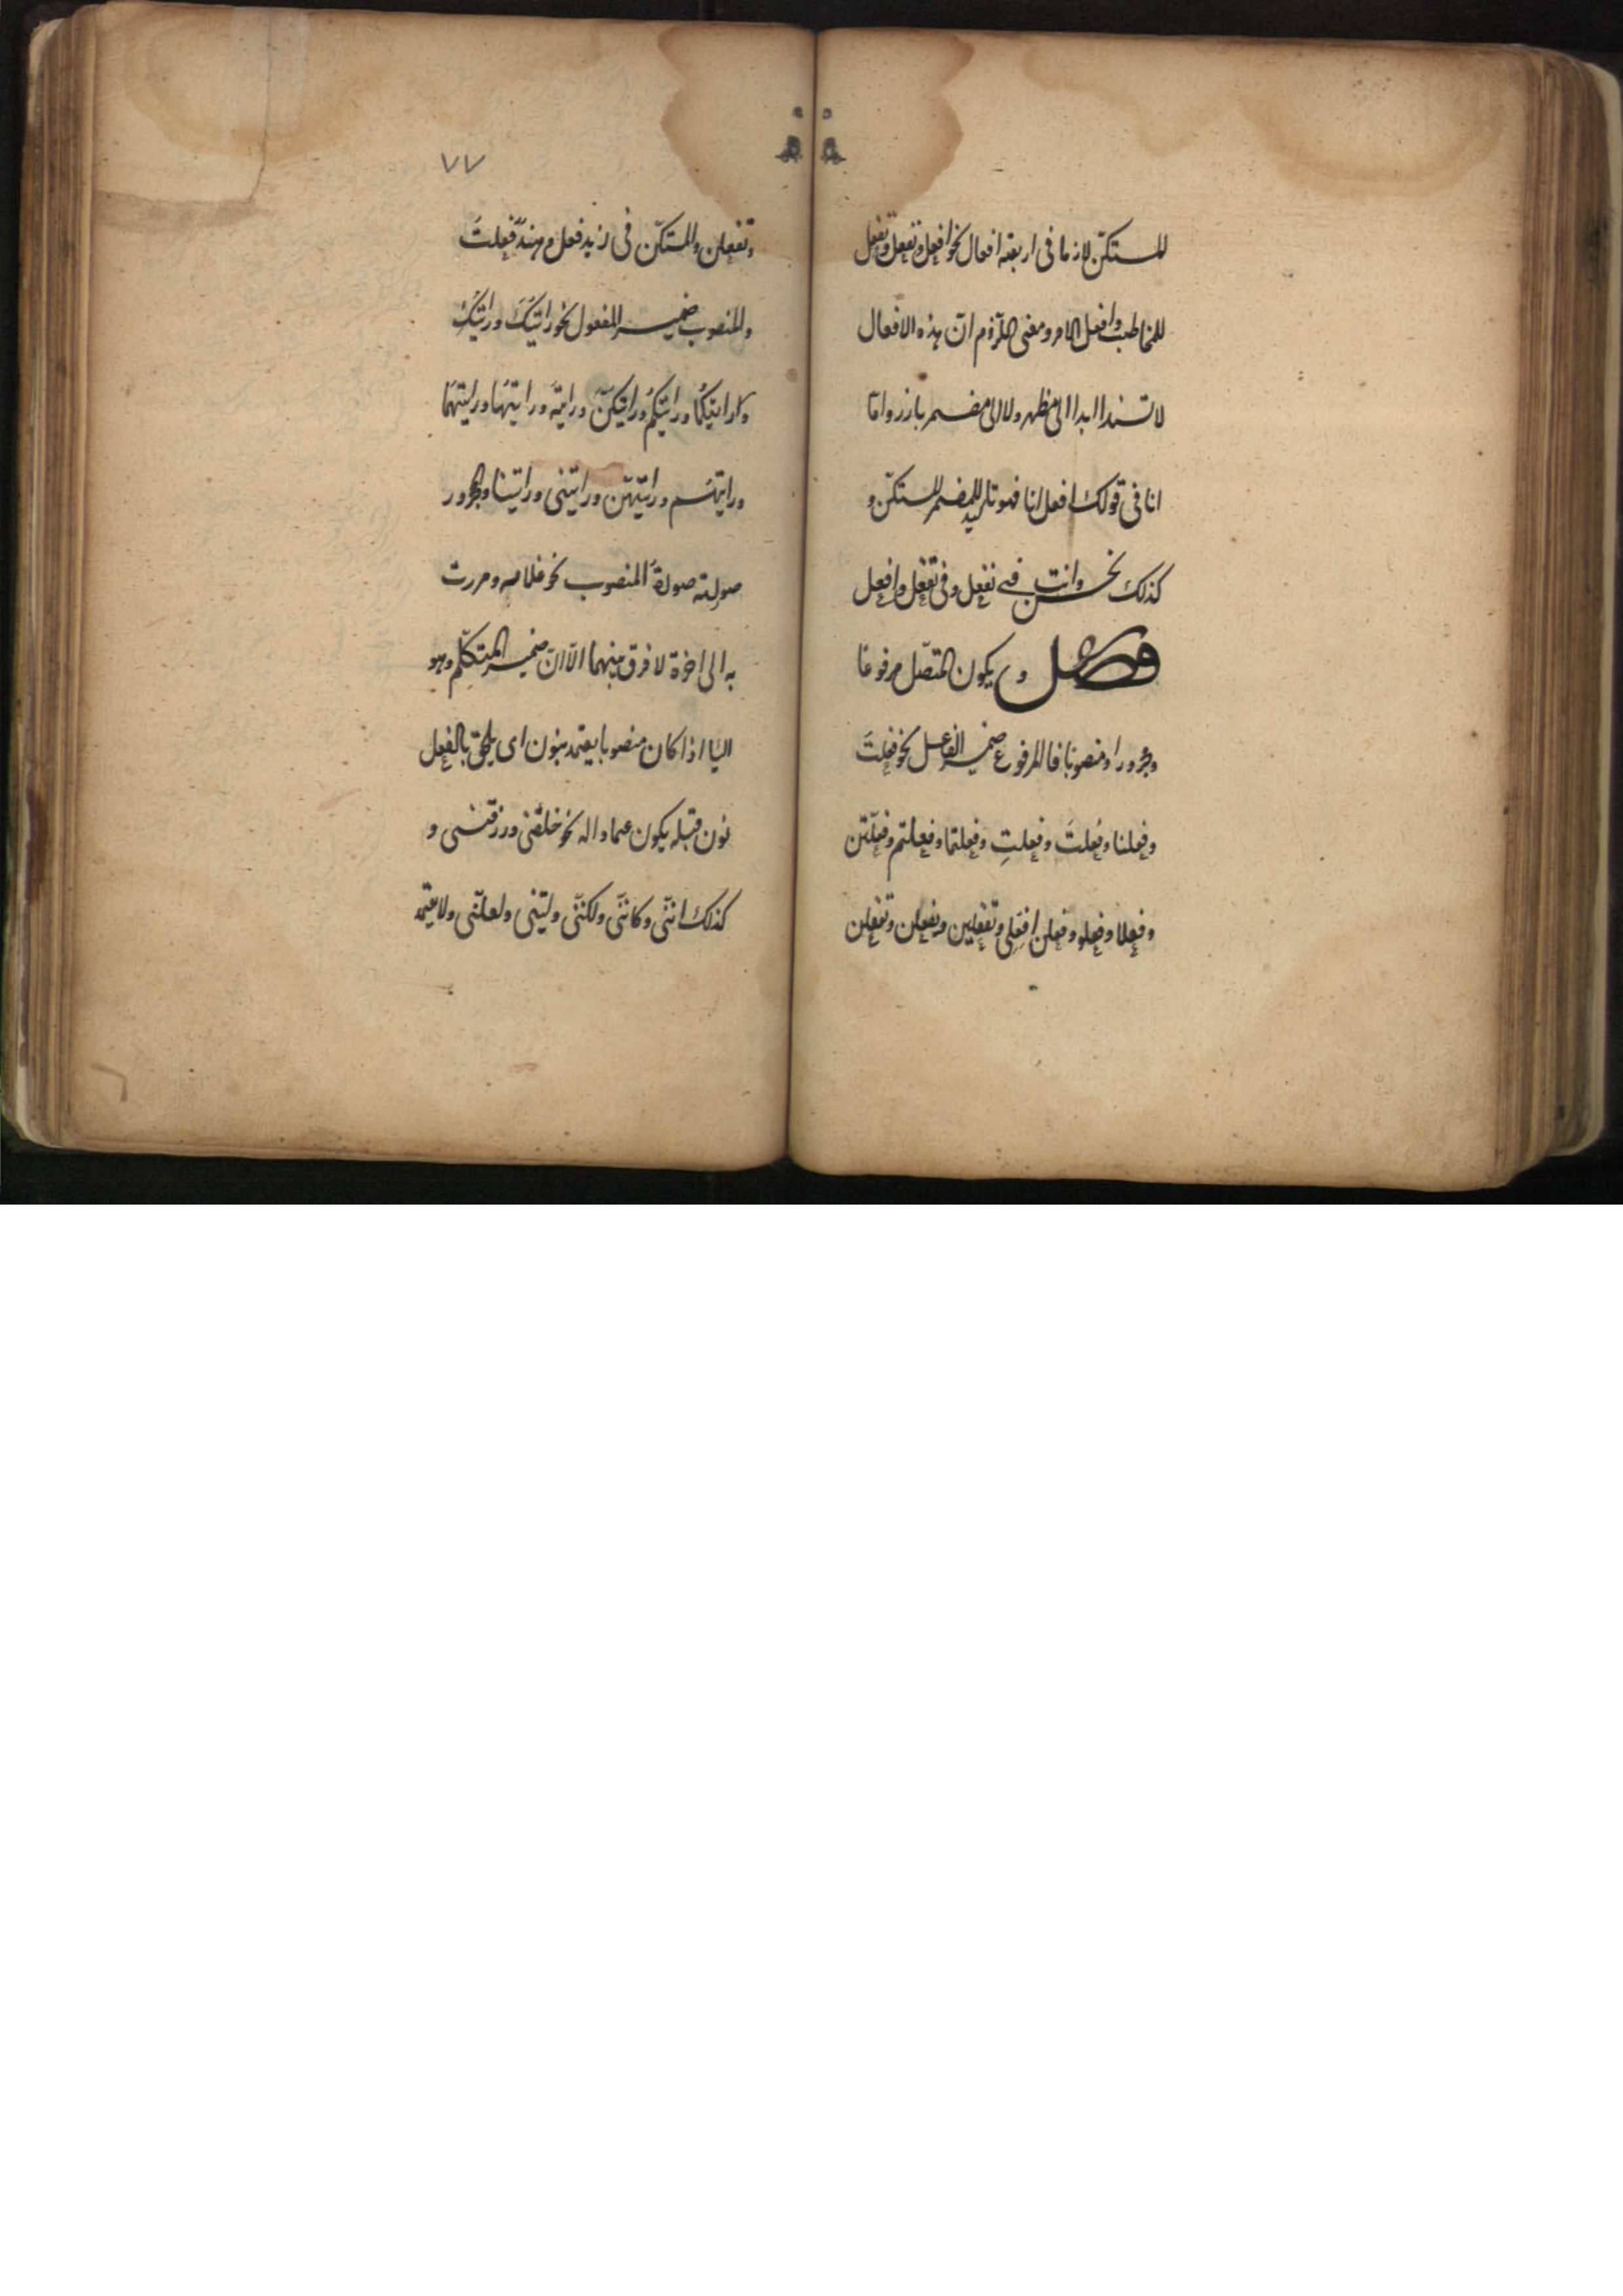 المستكنّ لازما فى اربعة افعال نحو افعل ونفعل وتفعل
للمخاطب وافعل الامر ومعنى اللزوم انّ هذه الافعال
لا تسند ابدا الى مظهر ولا الى مضمر بارز وامّا
انا فى قولك افعل انا فهو تاكيد للمضمر المستكنّ و
كذلك نحن وانت فے نفعل وفى تفعل وافعل
فصل و يكون المتصّل مرفوعًا
ومجرورا ومنصوبًا فالمرفوع ضمير الفاعل نحو فعلتَ
وفعلنا وفعلتَ وفعلتِ وفعلتما وفعلتم وفعلتن
وفعلا وفعلوا وفعلن افعلى وتفعلين ويفعلن وتفعلن
٧٧
وتفعلن والمستكنّ فى زيد فعل وهند فعلت
والمنصوب ضمير المفعول نحو رايتكَ ورايتكِ
ورايتكما ورايتكم ورايتكنّ ورايته ورايتها ورايتهما
ورايتهم ورايتهنّ ورايتنى ورايتنا والمجرور
صورته صورة المنصوب نحو غلامه ومررت
به الى اخره لا فرق بينهما الّا انّ ضمير المتكلّم وهو
اليا اذا كان منصوبا يعتمد بنون اى يلحق بالفعل
نون قبله يكون عمادا له نحو خلقنى ورزقنى و
كذلك انّنى وكانّنى ولكنّنى وليتنى ولعلّنى ولا يعتمد